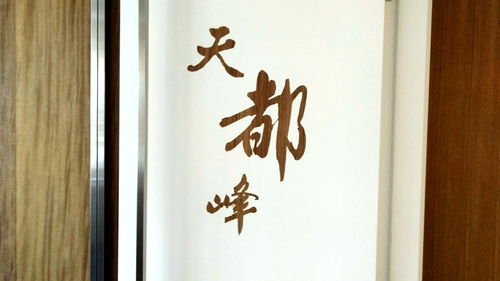 天都峰